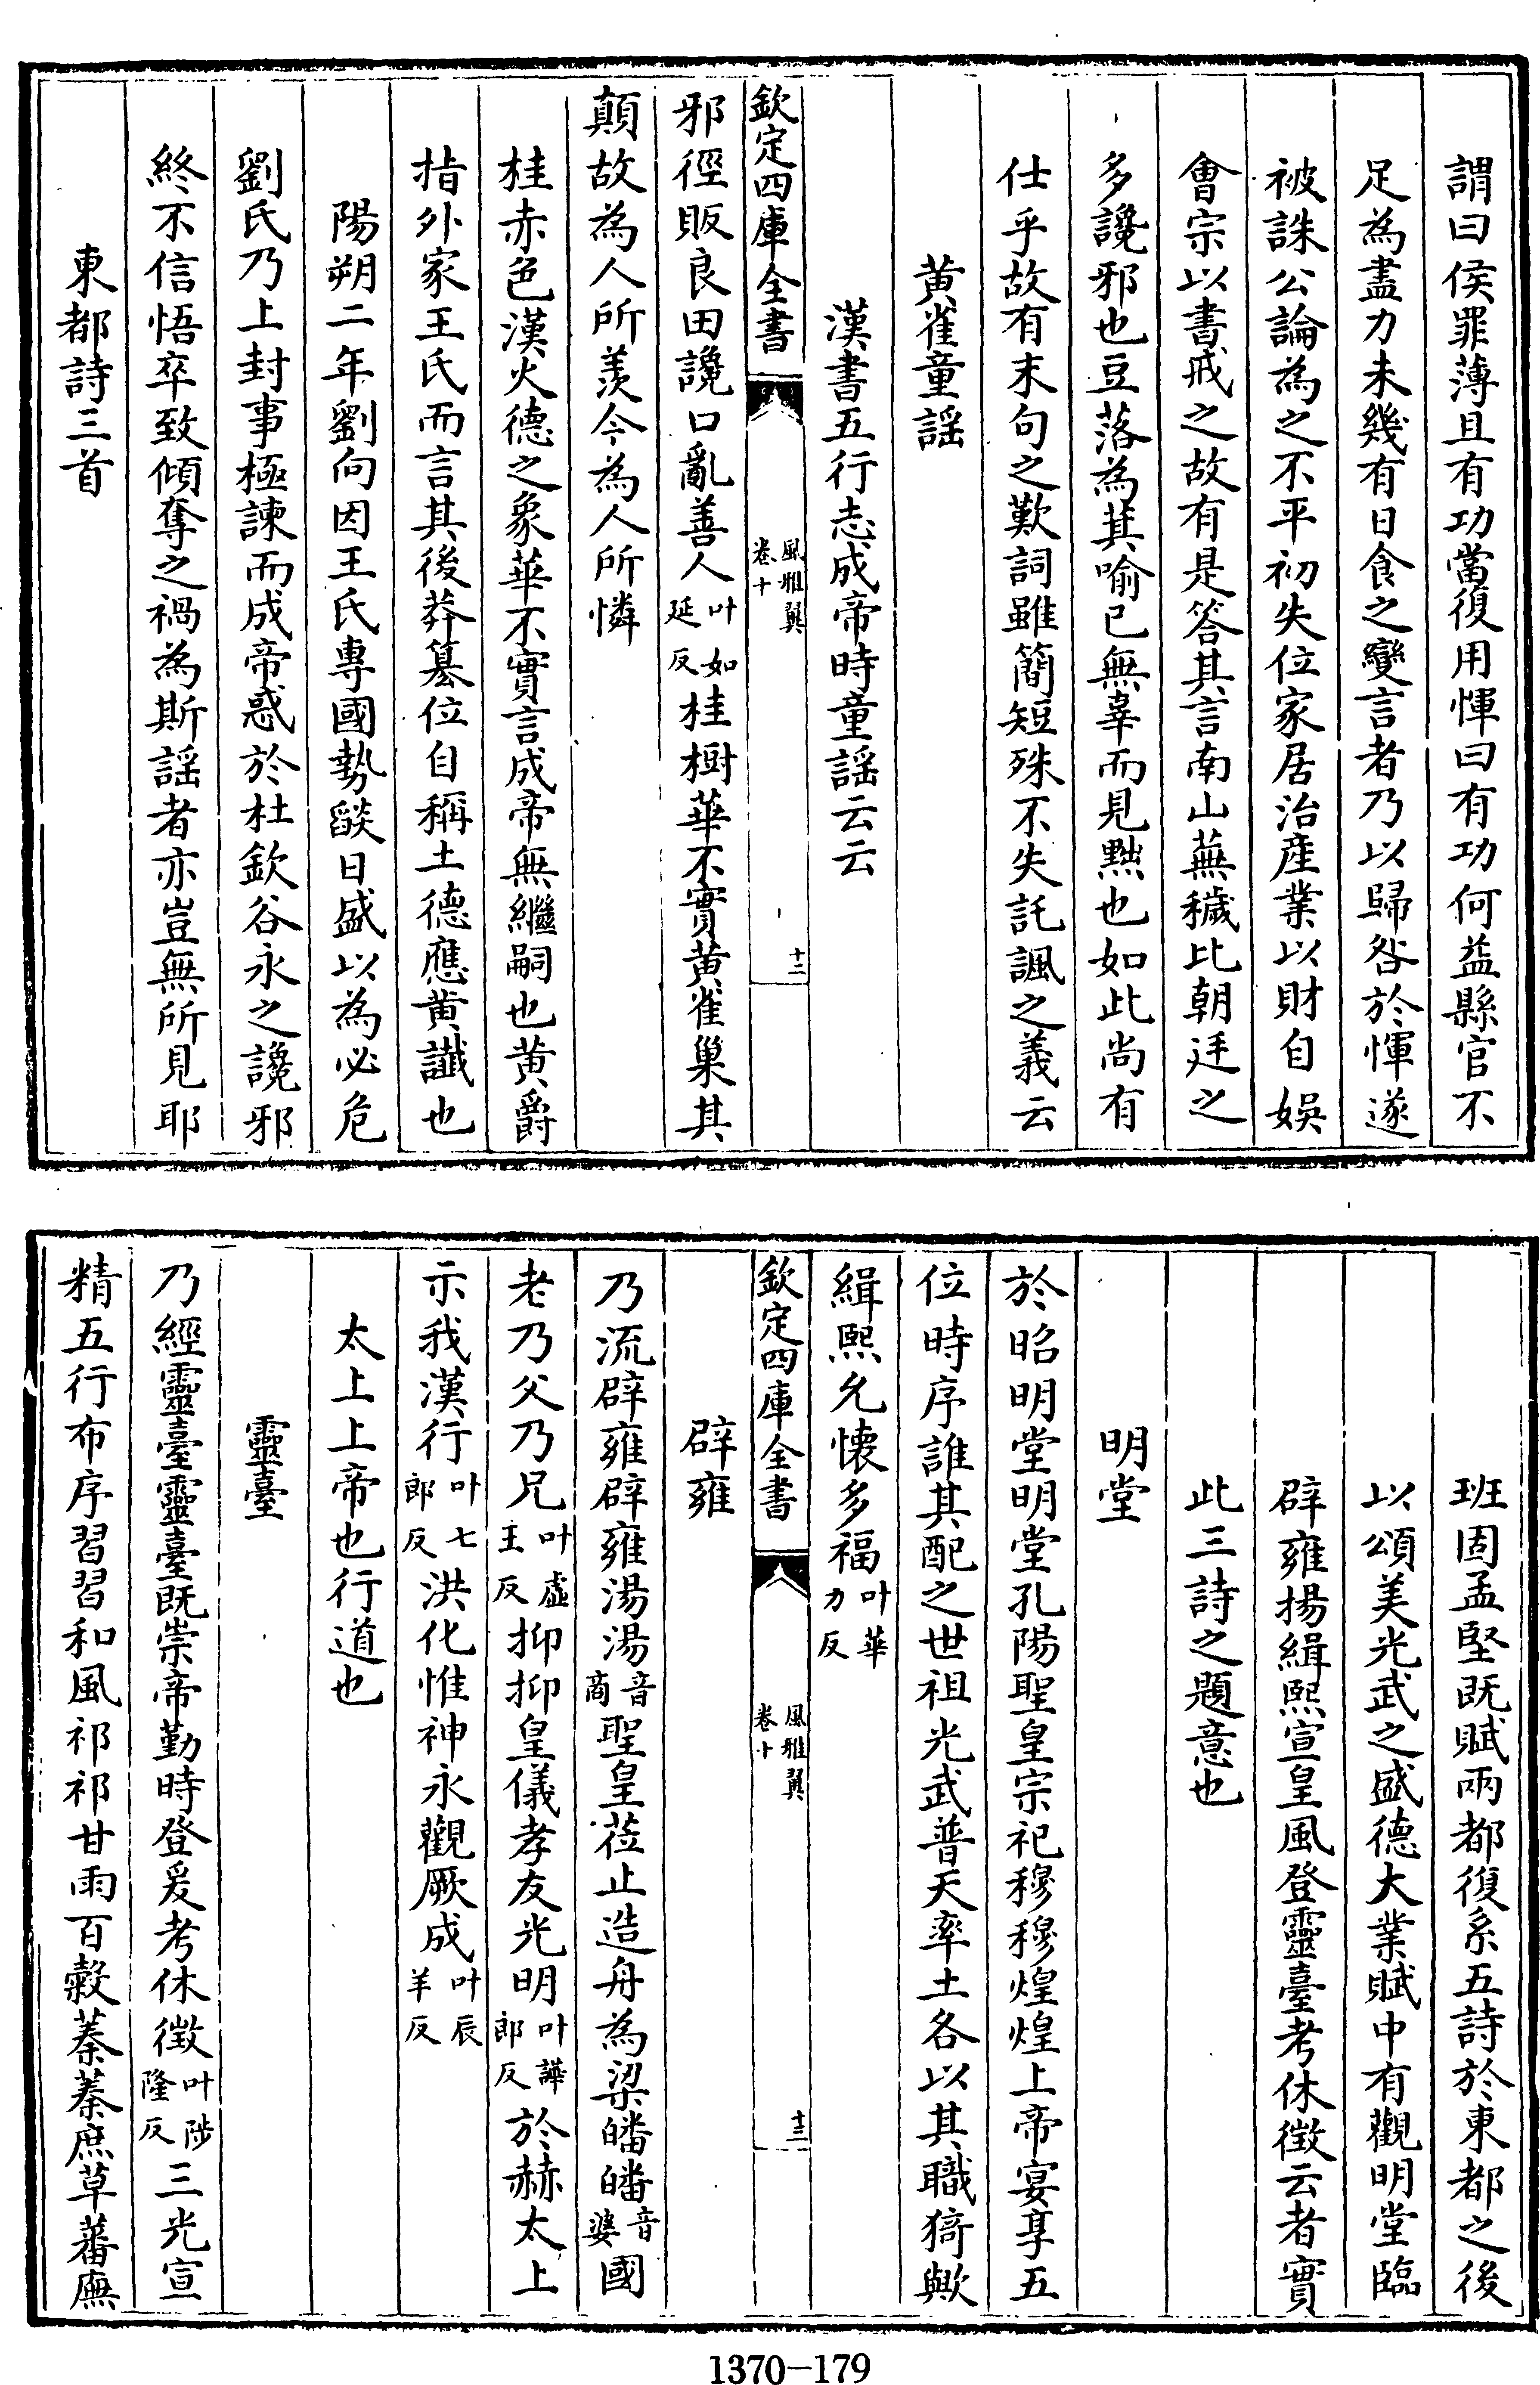 謂曰侯罪薄且有功當復用惲曰有功何益縣官不
足為盡力未幾有日食之變言者乃以歸咎於惲遂
被誅公論為之不平初失位家居治產業以財自娛
會宗以書戒之故有是答其言南山蕪穢比朝廷之
多讒邪也豆落為萁喻已無辜而見黜也如此尚有
仕乎故有末句之歎詞雖簡短殊不失託諷之義云
黄雀童謡
漢書五行志成帝時童謡云云
欽定四庫全書
風雅翼
卷十
十二
邪徑販良田讒口亂善人叶如延反桂樹華不實黄雀巢其
顛故為人所羡今為人所憐
桂赤色漢火德之象華不實言成帝無繼嗣也黄爵
指外家王氏而言其後莽簒位自稱土德應黄讖也
陽朔二年劉向因王氏專國勢燄日盛以為必危
劉氏乃上封事極諫而成帝惑於杜欽谷永之讒邪
終不信悟卒致傾奪之禍為斯謡者亦豈無所見耶
東都詩三首
班固孟堅既賦兩都復系五詩於東都之後
以頌美光武之盛德大業賦中有觀明堂臨
辟雍揚緝熙宣皇風登靈臺考休徴云者實
此三詩之題意也
明堂
於昭明堂明堂孔陽聖皇宗祀穆穆煌煌上帝宴享五
位時序誰其配之世祖光武普天率土各以其職猗歟
緝熙允懐多福叶華力反
欽定四庫全書
風雅翼
卷十
十三
辟雍
乃流辟雍辟雍湯湯音商聖皇莅止造舟為梁皤皤音婆國
老乃父乃兄叶虛王反抑抑皇儀孝友光明叶謨郎反於赫太上
示我漢行叶七郎反洪化惟神永觀厥成叶辰羊反
太上上帝也行道也
靈臺
乃經靈臺靈臺既崇帝勤時登爰考休徴叶陟隆反三光宣
精五行布序習習和風祁祁甘雨百穀蓁蓁庶草蕃廡
1370-179